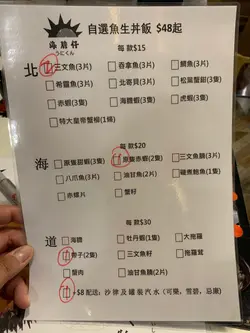 海膽仔
うにくん
自選魚生丼飯 $48起
每款$15
北
三文魚(3片)
吞拿魚(3片)
鯛魚(3片)
希靈魚(3片)
北寄貝(3片)
松葉蟹甜(3隻)
赤蝦(3隻)
海鐺蝦(3隻)
虎蝦(3隻)
特大皇帝蟹柳(1條)
每款$20
海
原隻甜蝦(3隻)
原隻赤蝦(2隻)
三文魚腩(3片)
八爪魚(3片)
油甘魚(2片)
磯煮鮑魚(1隻)
赤蝶片
蟹籽
每款$30
道
海膽
牡丹蝦(1隻)
大拖羅
帶子(2隻)
三文魚籽
拖羅茸
蟹肉
油甘魚腩(2片)
+$8配送: 沙律及罐裝汽水(可樂, 雪碧, 忌廉)